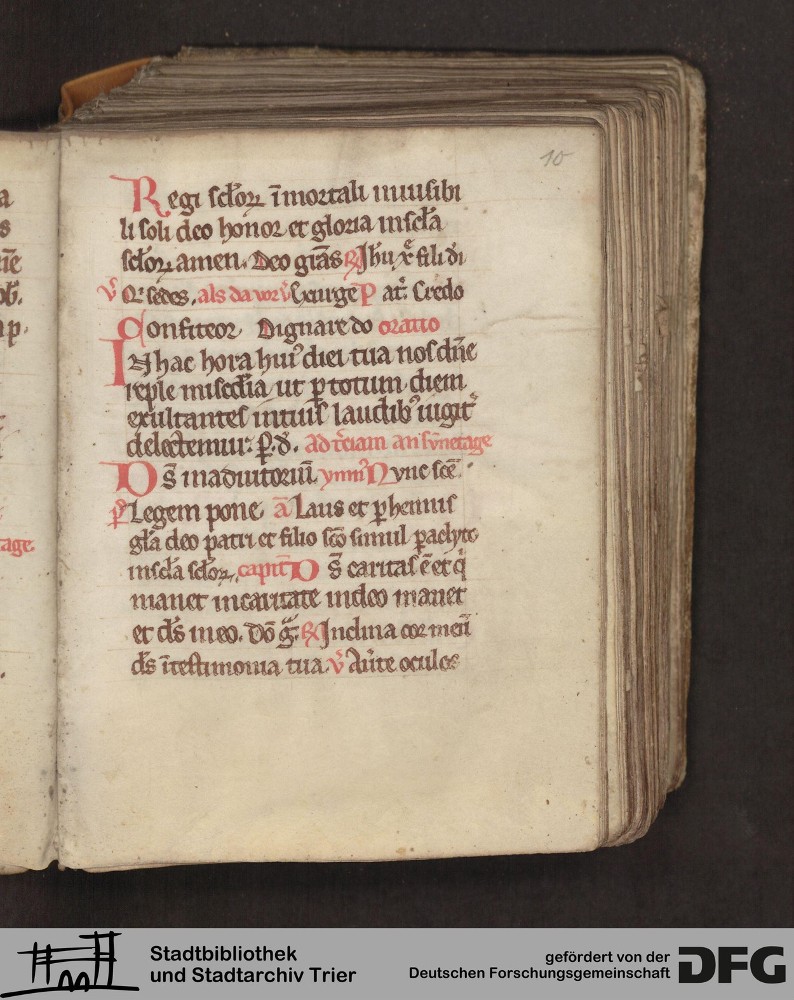 10
Regi sc̄loꝝ īmortali inuisibi
li soli deo honor et gloria in sc̄la
sc̄loꝝ amen. Deo grãs ℟ Jhu xp̄e fili di
℣ Qͥ sedes, als da vor ℣ Exurge P at᷑ Credo
Confiteor Dignare do oratio
IN hac hora huiꝰ diei tua nos dn̄e
reple mis̄cdia ut ꝑ totum diem
exultantes in tuis laudibꝰ iugit᷑
delectemur. ꝑ. d̄. Ad t̄ciam an svnetage
Ds̄ in adiutoriū ymnꝰ Nvnc sc̄e.
p̄s Legem pone ā Laus et ꝑhennis
gl̄a deo patri et filio sc̄o simul paclyto
in sc̄la sc̄loꝝ, capitl̄ Ds̄ caritas ē et qͥ
manet in caritate in deo manet
et ds̄ in eo. Dō gͣ. ℟ Inclina cor meū
ds̄ ī testimonia tua ℣ Au̾te oculos
age
Stadtbibliothek
und Stadtarchiv Trier
gefördert von der
Deutschen Forschungsgemeinschaft
DFG